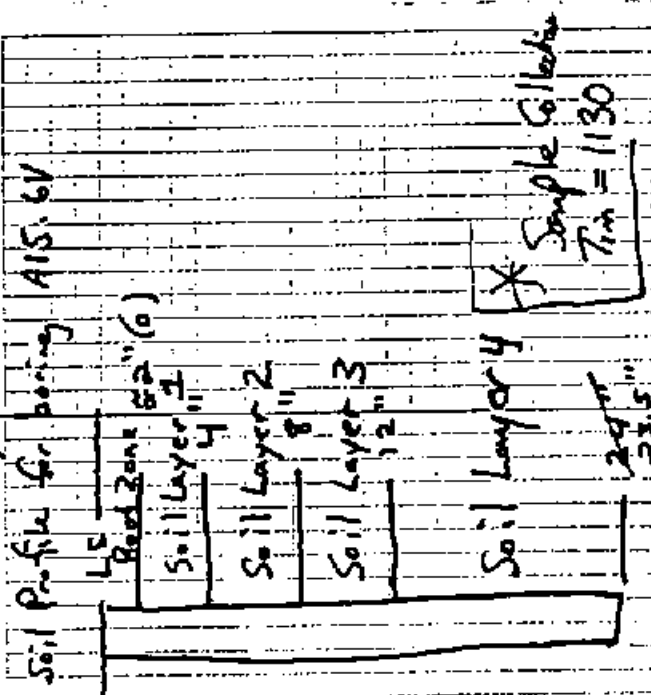 Soil Profile for boring A15.6V
LS
Root Zone 2" (0)
Soil Layer 1
4"
Soil Layer 2
8"
Soil Layer 3
12"
Soil Layer 4
24"
23.5"
* Sample Collection
Tim = 1130